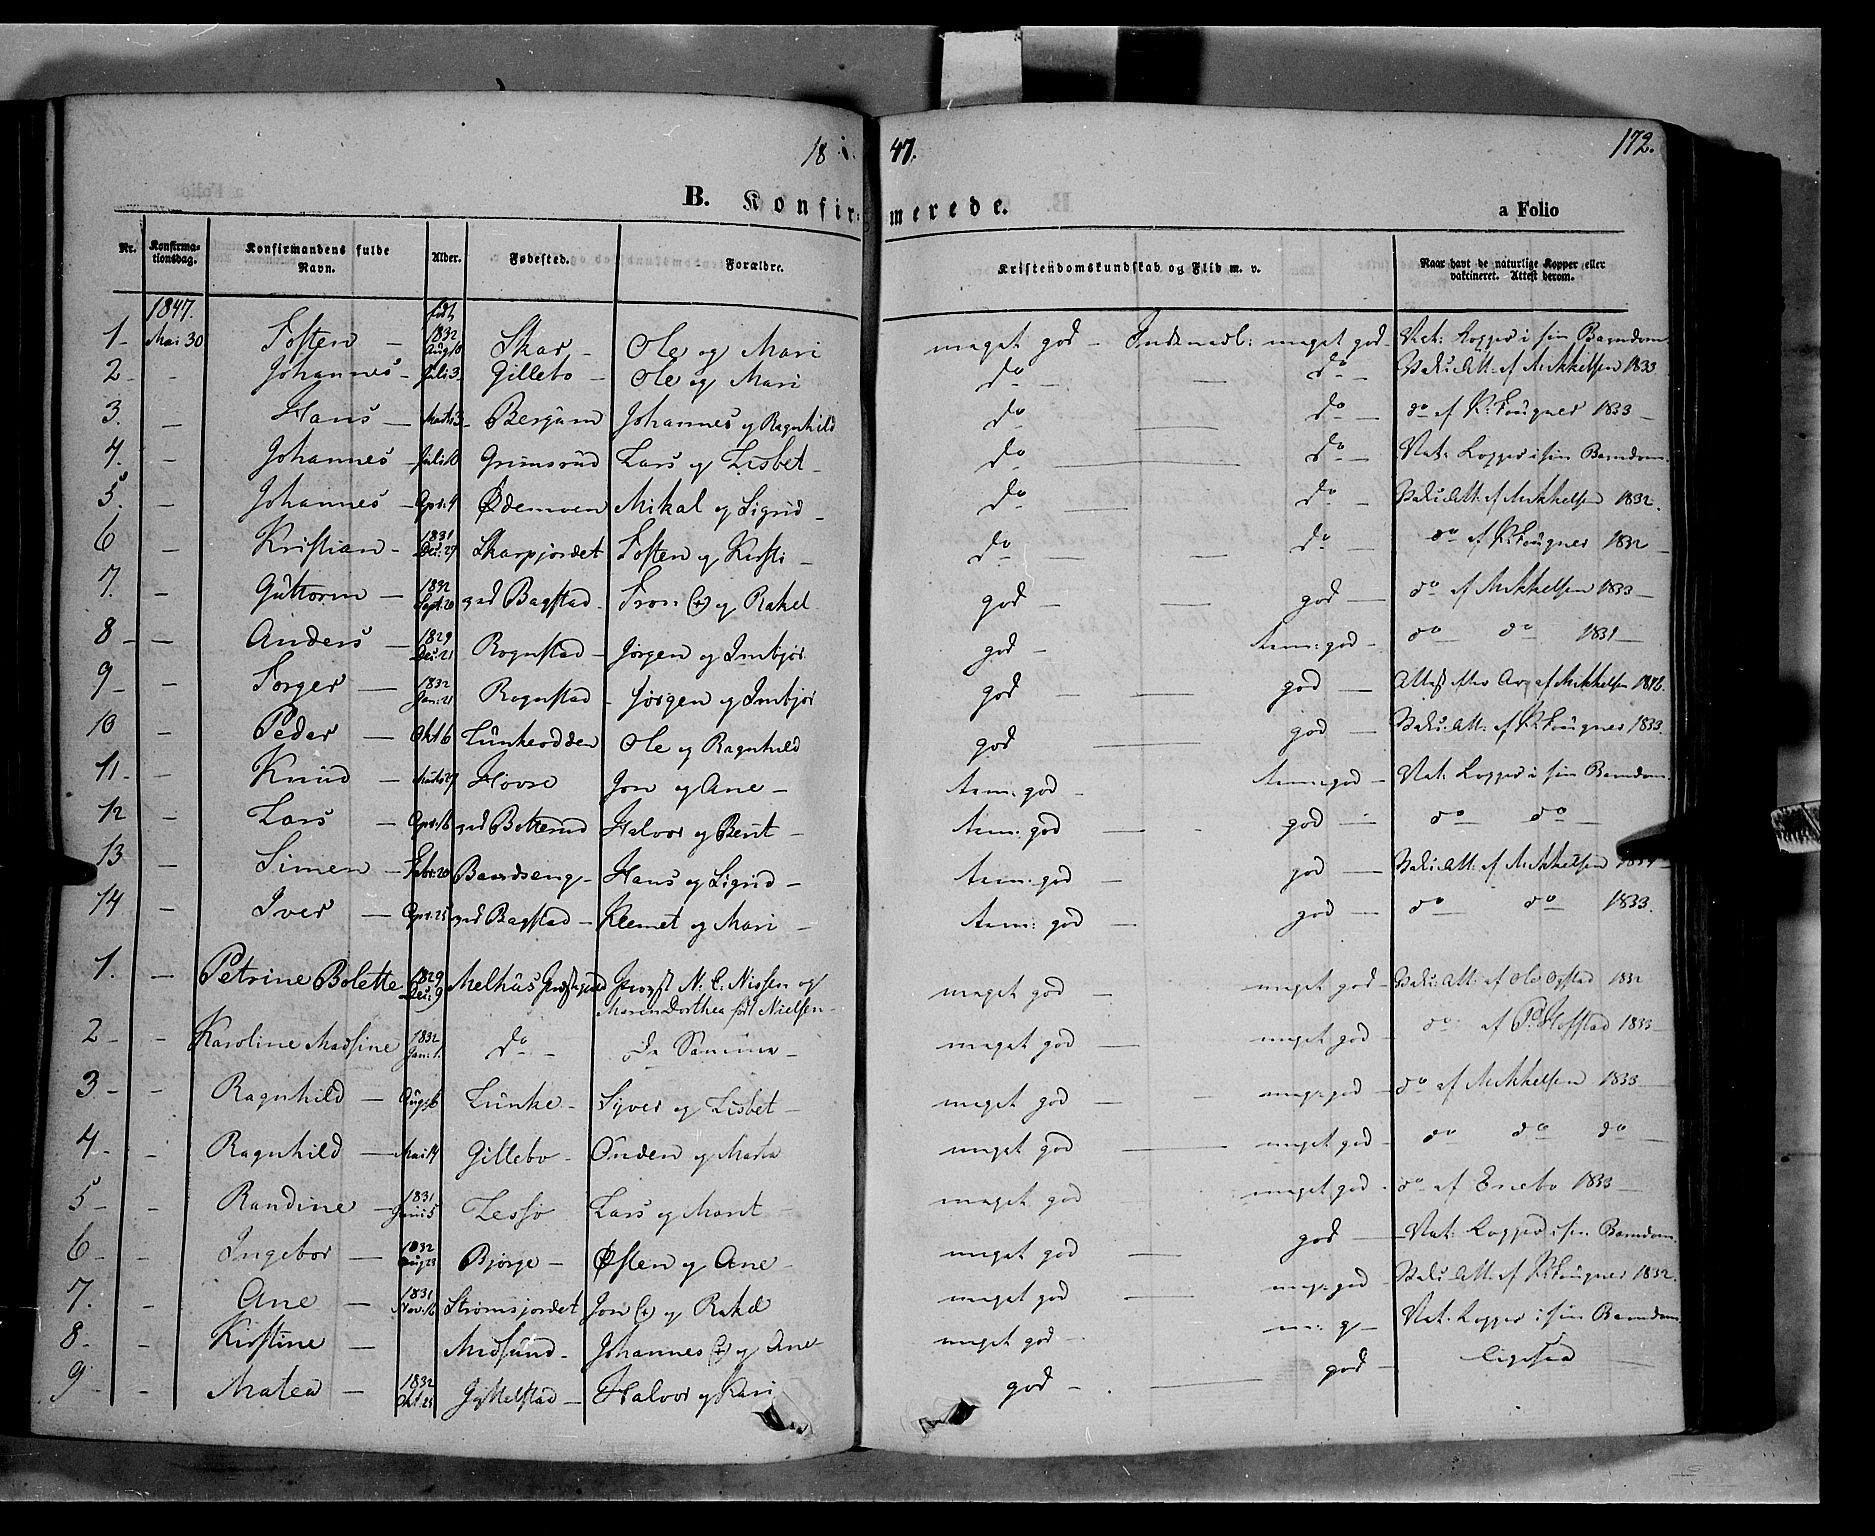 18 47. 172.
B. Konfirmerede. a Folio
Nr. Konfirmationsdag. Konfirmandens fulde Navn. Alder. Fødested. Forældre. Kristendomskundskab og Flid m. v. Naar havt de naturlige Kopper eller vaktineret. Attest derom.
1847. født
1- Mai 30 Tosten - 1832 Aug 10 Skar - Ole og Mari maget god - maget god - Nat: Kopper i sin Barndom
2 - - Johannes - Juli 3 Gillebo - Ole og Mari do - - do - Vaks: Att: af Mikkelsen 1833
3. - Hans - Marts 3 - Johannes og Ragnhild do - do - do af K: Fougner 1833 -
4. - Johannes - Juli 10 Grimsrud Lars og Lisbet - do - do - Nat: Kopper i sin Barndom
5. - Johannes - Apr: 4 Ødemoen Mikal og Sigrid - do - do - Vaks: Att: af Mikkelsen 1832.
6 - Kristian - 1831 Des: 29 Skarpjordet Tosten og Kirsti - do - - do - do af K: Fougner 1832
7. - Guttorm - 1832 Sept: 20 Bagstad - Tron (+) og Rakel god - - god - do af Mikkelsen 1833 -
8 - - Anders - 1829 Des: 21 Rognstad - Jørgen og Imbjør god - tem: god - do do 1831 -
9 - - Torger - 1832 Jan: 21 Rognstad - Jørgen og Imbjør god - - god - Attest af Mikkelsen
10 - Peder - Okt 6 Lunkeodden Ole og Ragnhild god - god - Vaks: Att: af K: Fougner 1833.
11 - - Knud - Marts 27 Hovre Jon og Ane - tem: god - tem: god - Nat: Kopper i sin Barndom
12 - Lars - Apr: 16 Halvor og Berit - tem: god - god - do do -
13 - Simen - Febr: 20 Baardseng - Hans og Sigrid - tem: god - god - Vaks: Att: af Mikkelsen
14 - Iver - Apr: 25 Bagstad - Klemet og Mari - tem: god god - do do 1833.
1. - Petrine Bolette 1829 Des: 9 Melhus Præstegjeld Provst N. C. Nissen og
Maren Dorthea født Nielsen -
maget god - maget god - Vaks: Att: af Ole Opstad 1832
2 - - Karoline Madsine 1832 Jan: 1. do - de Samme - maget god - maget god - do af P: Hofstad 1833 -
3 - - Ragnhild - Aug: 16 Lunke - Siver og Lisbet - maget god - - mag: god - do af Mikkelsen 1833 -
4. - Ragnhild - Mai 14 Gillebo - Anden og Marta maget god - maget god - do do do -
5 - - Randine - 1831 Juni 5 Lesso Lars og Marit - maget god - maget god - do af Enebo 1833 -
6 - - Ingebor - 1832 Aug 23 Bjørge - Østen og Ane - maget god - god - Nat: Kopper i sin Barndom.
7. - Ane - 1831 Nov: 16 Strømsjordet Jon (+) og Rakel maget god - mag: god - Vaks: Att: af K: Fougner 1832.
8 - - Kirstine - Midsund - Johannes (+) og Ane maget god - m: g - Nat: Kopper i sin Barndom
9 - - Matea - 1832 Okt: 25 Gjillelstad - Halvor og Kari god - - god - ligesaa -